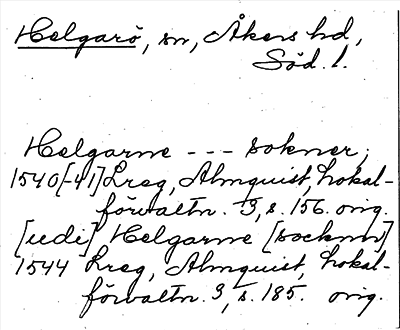 Helgarö, sn, Åkers hd,
Söd. l.
Helgarne --- sokner;
1540[-41] Lreg, Almquist, Lokal-
förvaltn. 3, s. 156. orig.
[udi] Helgarne [socknn]
1544 Lreg, Almquist, Lokal-
förvaltn. 3, s. 185. orig.